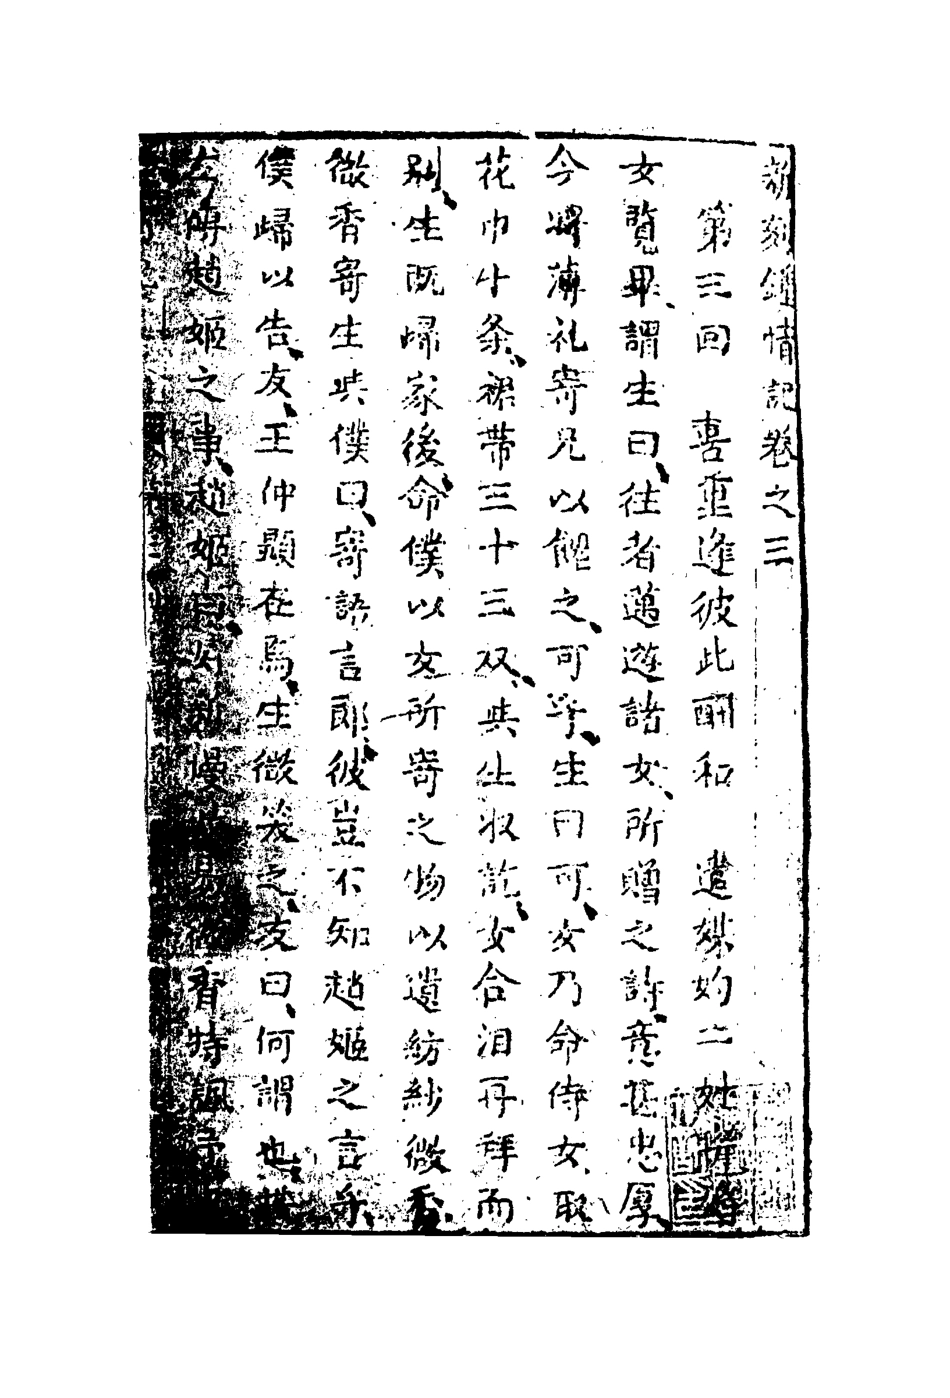 新刻鍾情記卷之三
第三回 喜重逢彼此酬和 遣媒妁二姓諧
女覽畢、謂生曰、往者邁遊諸女、所贈之詩、意甚忠厚、
今將薄礼寄兄以餽之、可乎、生曰可、女乃命侍女取
花巾廿条、裙帶三十三双、與生收訖、女含泪再拜而
別、生既歸家後、命僕以女所寄之物以遺紡紗微香、
微香寄生與僕曰、寄語言郎、彼豈不知趙姬之言乎、
僕歸以告、友、王仲顯在焉、生微笑之、友曰、何謂也、
趙姬之事、趙姬曰 香特諷予